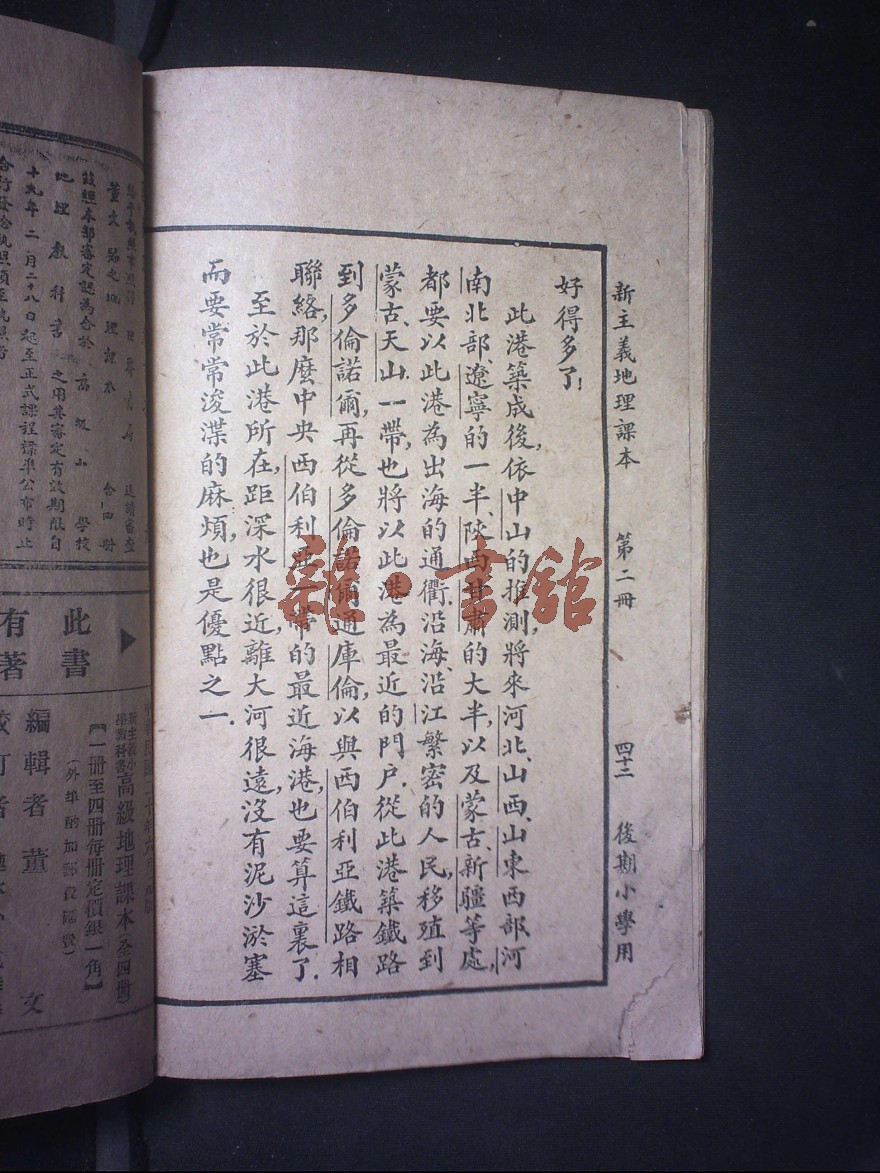 新主義地理課本 第二冊 四十二 後期小學用
好得多了!
此港築成後,依中山的推測,將來河北、山西、山東西部、河
南北部、遼寧的一半、陝西甘肅的大半,以及蒙古、新疆等處,
都要以此港為出海的通衢.沿海、沿江繁密的人民,移殖到
蒙古、天山一帶,也將以此港為最近的門戶.從此港築鐵路
到多倫諾爾,再從多倫諾爾通庫倫,以與西伯利亞鐵路相
聯絡,那麼中央西伯利亞一帶的最近海港,也要算這裏了.
至於此港所在,距深水很近,離大河很遠,沒有泥沙淤塞
而要常常浚渫的麻煩,也是優點之一.
雜·書館
董文
地理教科書
茲經本部審定認為合於高級小學校
之用其審定有效期限自
十九年二月二十八日起至正式課程標準公布時止
此書
有著
高級地理課本(全四冊)
【一冊至四冊每冊定價銀一角】
(外埠酌加郵費匯費)
編輯者 董文